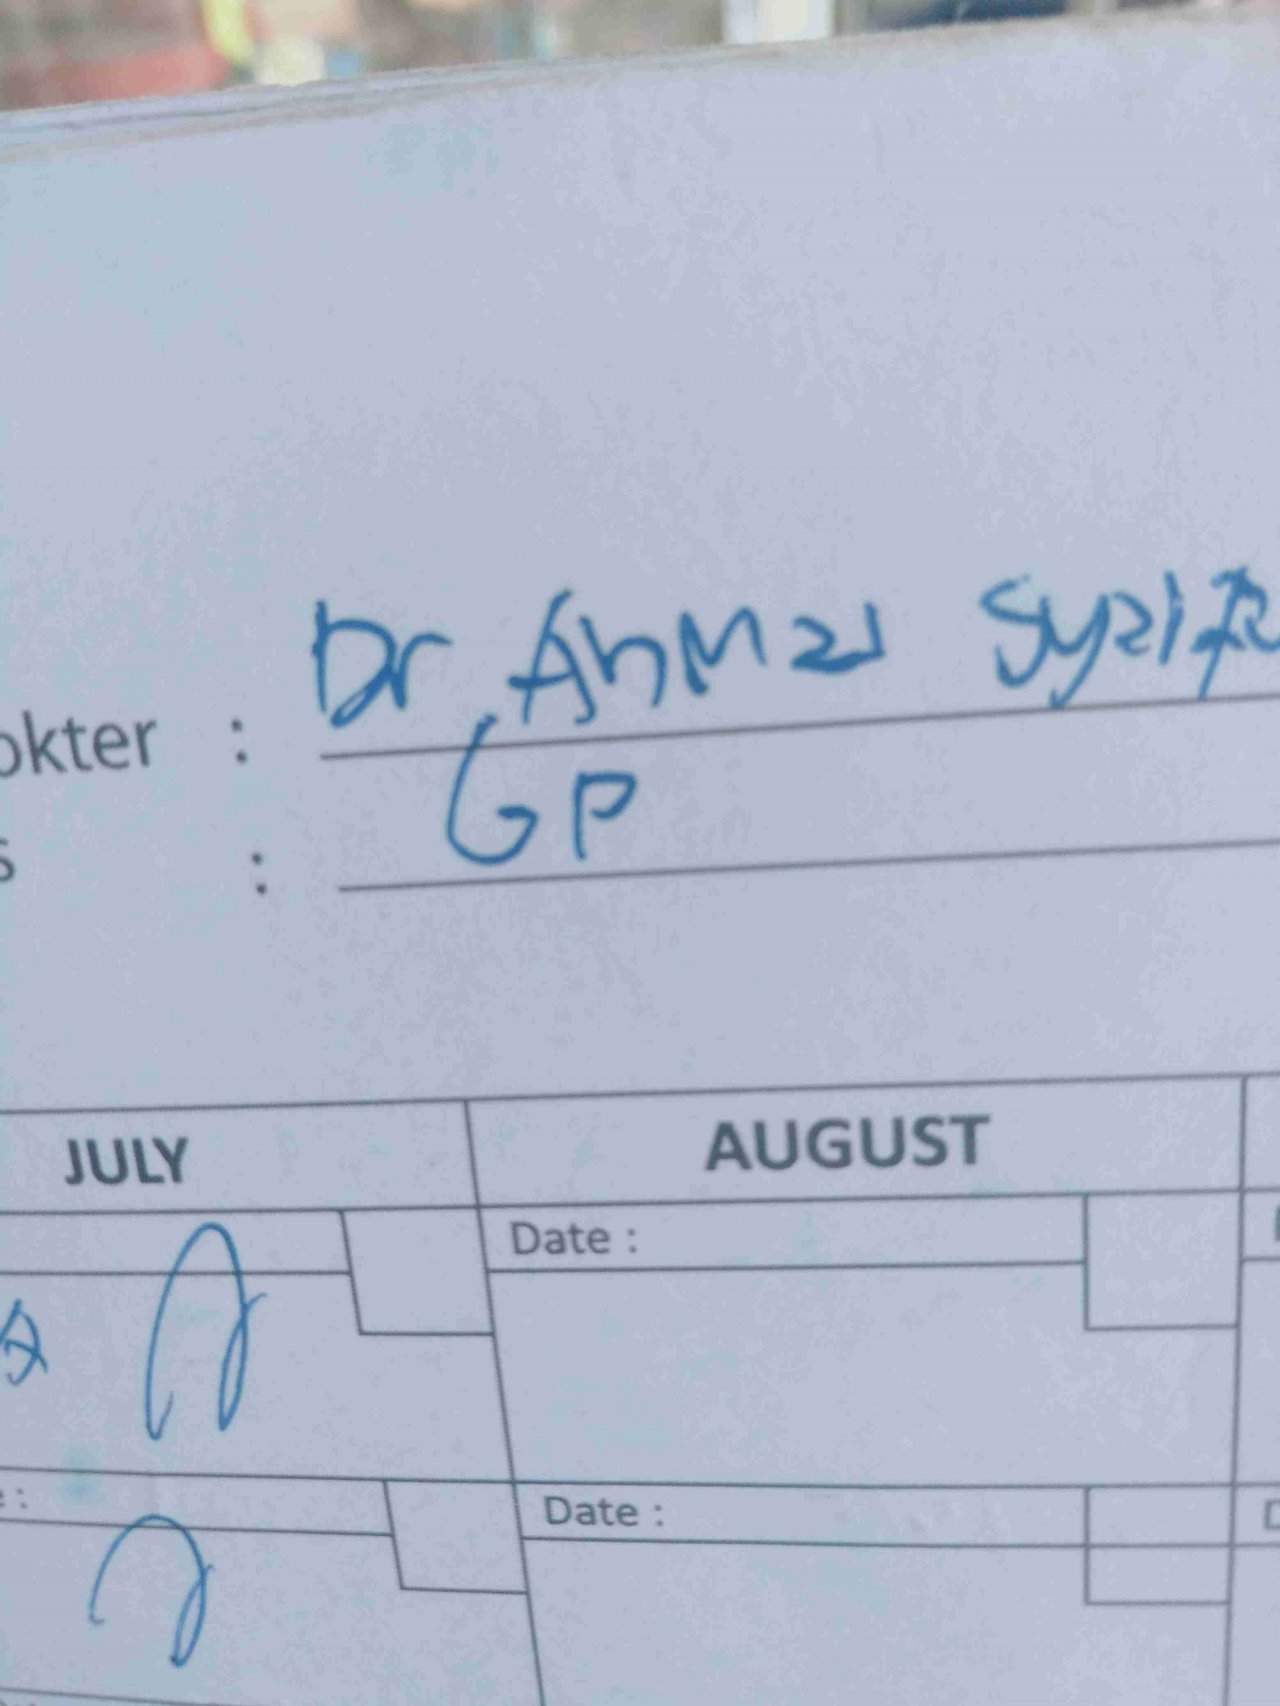 okter : Dr. Ahmad
s : GP
JULY AUGUST
Date :
e : Date :